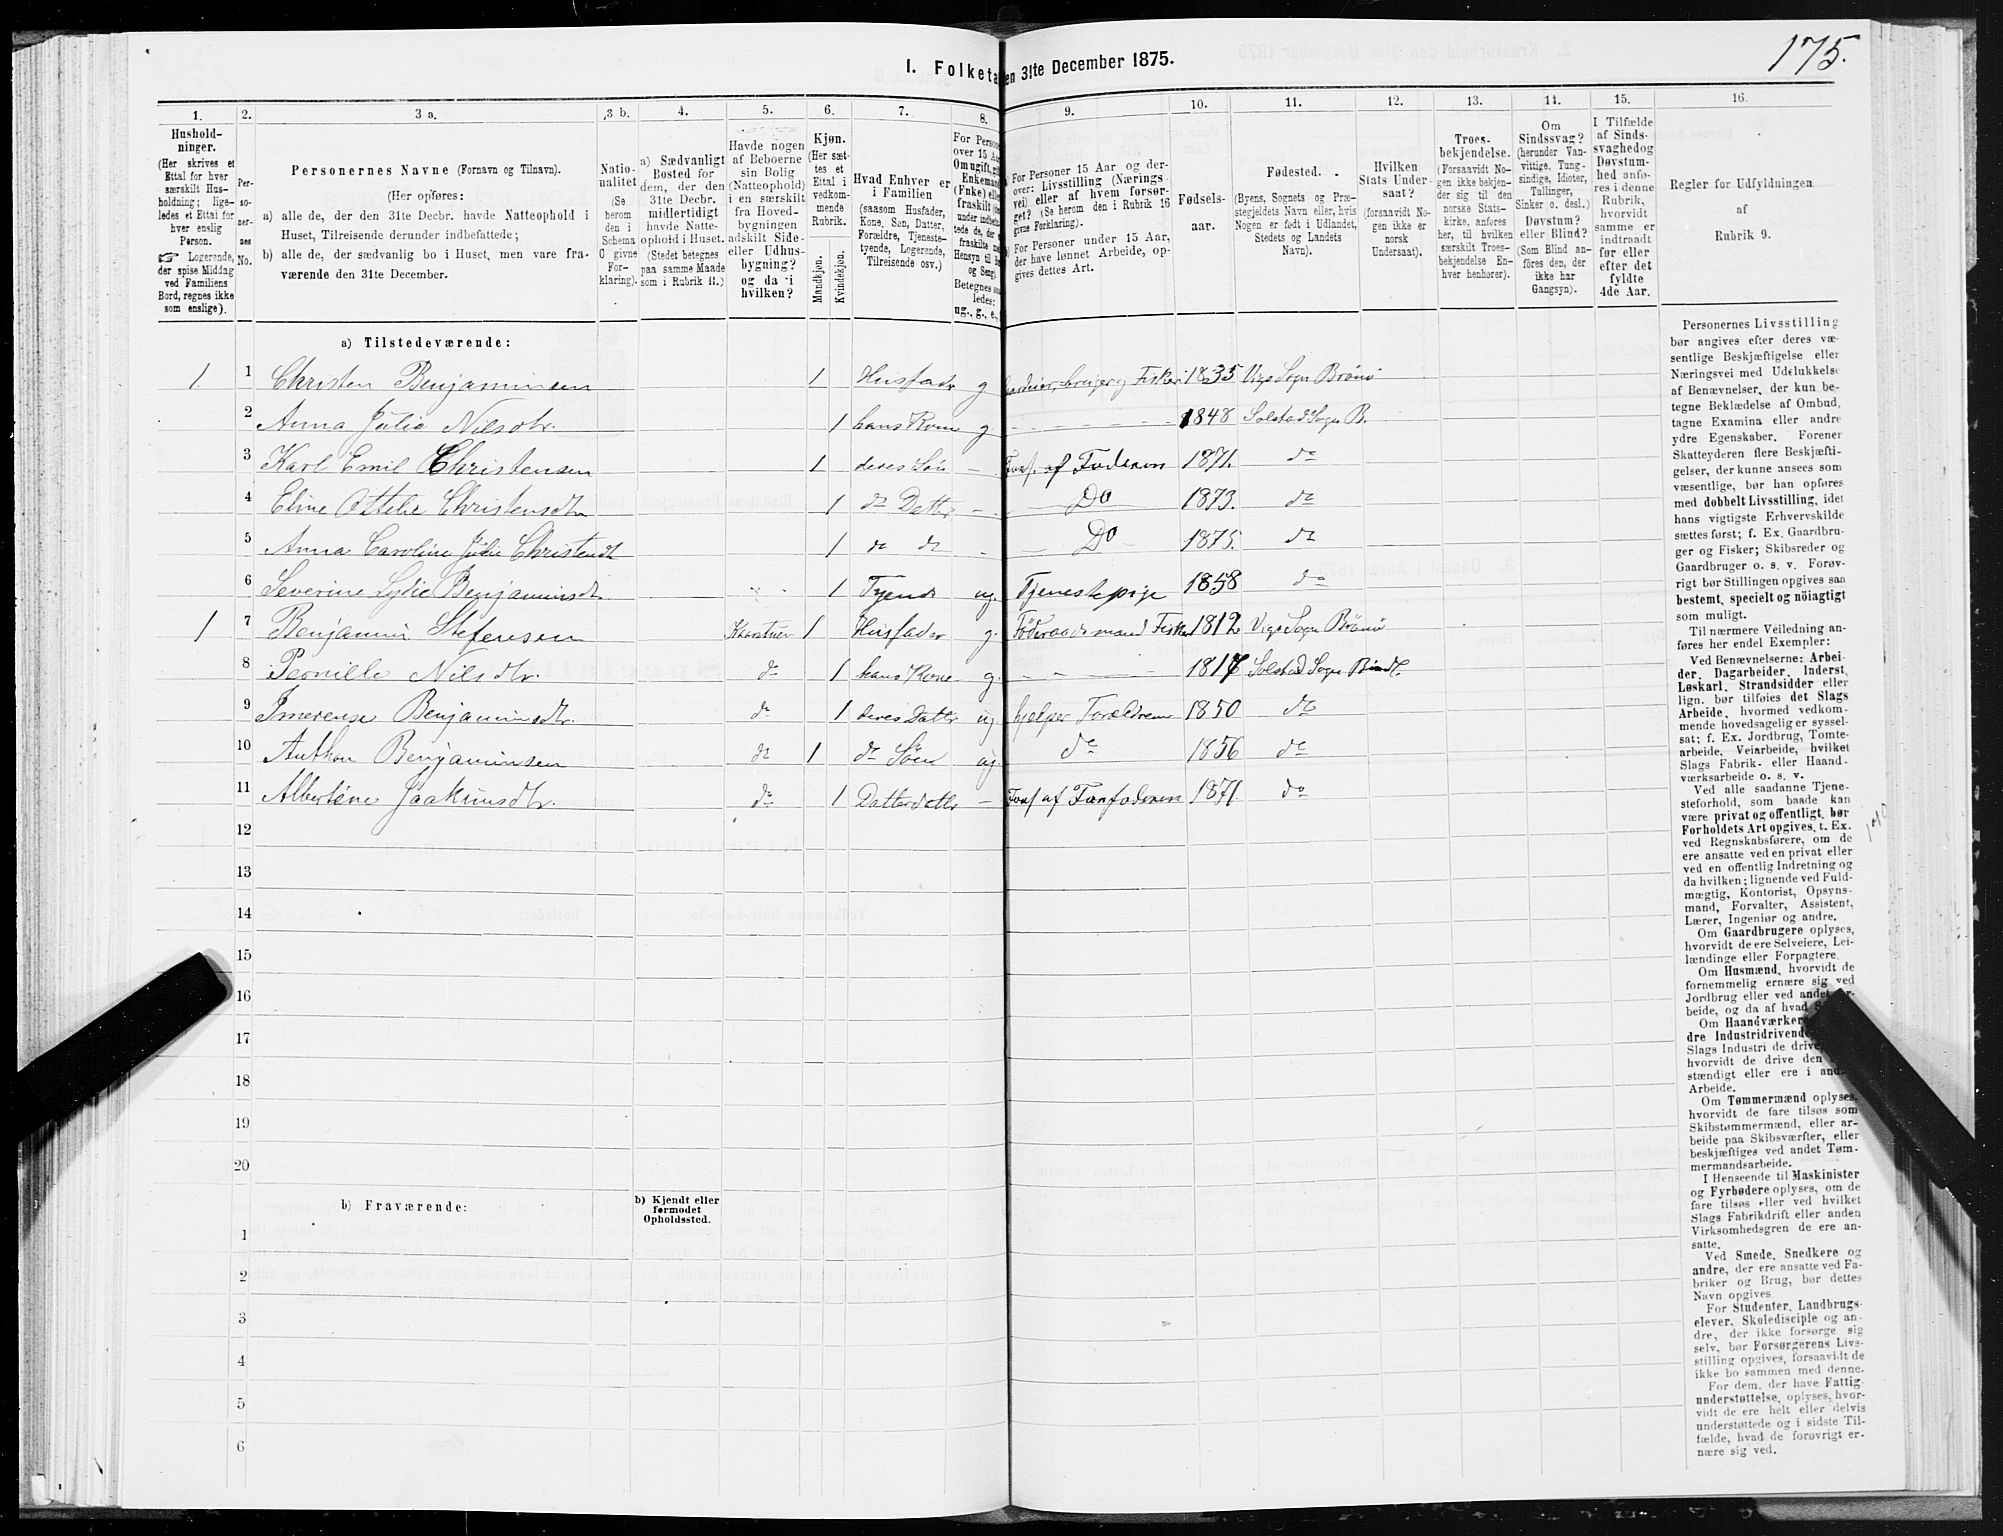 175.
I. Folketa en 31te December 1875.
1. 2. 3 a. 3 b. 4. 5. 6. 7. 8. 9. 10. 11. 12. 13. 14. 15. 16.
Hushold-
ninger.
(Her skrives et
Ettal for hver
særskilt Hus-
holdning; lige-
ledes et Ettal for
hver enslig
Person.
☞ Logerende,
der spise Middag
ved Familiens
Bord, regnes ikke
som enslige).
Per-
so-
ner-
nes
No.
Personernes Navne (Fornavn og Tilnavn).
(Her opføres:
a) alle de, der den 31te Decbr. havde Natteophold i
Huset, Tilreisende derunder indbefattede;
b) alle de, der sædvanlig bo i Huset, men vare fra-
værende den 31te December.
Natio-
nalitet
(Se
herom
den i
Schema
O givne
For-
klaring).
a) Sædvanligt
Bosted for
dem, der den
31te Decbr.
midlertidigt
havde Natte-
ophold i Huset.
(Stedet betegnes
paa samme Maade
som i Rubrik 11.)
Havde nogen
af Beboerne
sin Bolig
(Natteophold)
i en særskilt
fra Hoved-
bygningen
adskilt Side-
eller Udhus-
bygning?
og da i
hvilken?
Kjøn.
(Her sæt-
tes et
Ettal i
vedkom-
mende
Rubrik.
Mandkjøn.
Kvindekjøn.
Hvad Enhver er
i Familien
(saasom Husfader,
Kone, Søn, Datter,
Forældre, Tjeneste-
tyende, Logerende,
Tilreisende osv.)
For Persone
over 15 Aa
Om ugift, gi
Enkemand
(Fnke) elle
fraskilt
under indbefat-
tede de, de
fraskilte
Hensyn til B
og Seng)
Betegnes saa-
ledes:
ug., g., e.,
For Personer 15 Aar og der-
over: Livsstilling (Nærings-
vei) eller af hvem forsør-
get? (Se herom den i Rubrik 16
givne Forklaring).
For Personer under 15 Aar,
der have lønnet Arbeide, op-
gives dettes Art.
Fødsels-
aar.
Fødested.
(Byens, Sognets og Præ-
stegjeldets Navn eller, hvis
Nogen er født i Udlandet,
Stedets og Landets
Navn).
Hvilken
Stats Under-
saat?
(forsaavidt No-
gen ikke er
norsk
Undersaat).
Troes-
bekjendelse.
(Forsaavidt No-
gen ikke bekjen-
der sig til den
norske Stats-
kirke, anføres
her, til hvilken
særskilt Troes-
bekjendelse En-
hver henhører).
Om
Sindssvag?
(herunder Van-
vittige, Tung-
sindige, Idioter,
Tullinger,
Sinker o. desl.)
Døvstum?
eller Blind?
(Som Blind an-
føres den, der
ikke har
Gangsyn).
I Tilfælde
af Sinds-
svaghed og
Døvstum-
hed anfø-
res i denne
Rubrik,
hvorvidt
samme er
indtraadt
før eller
efter det
fyldte
4de Aar.
Regler for Udfyldningen
af
Rubrik 9.
a) Tilstedeværende:
1. 1 Christen Benjaminsen 1 Husfader g Gaardeier, bruger og Fisker 1835 Vigs Sogn Brønø
2 Anna Julie Nilsdtr. 1 hans Kone g 1848 Solstad Sogn B.
3 Karl Emil Christensen 1 deres Søn - Fors. af Faderen 1871. do
4 Eline Ottelie Christensdtr 1 do Datter - Do 1873. do
5 Anna Caroline Julie Christendt 1 do do - Do 1875. do
6 Severine Lydie Benjaminsdt. 1 Tyende ug. Tjenestepige 1858 do
1 7 Benjamin Stefensen 1 Husfader g. Föderaadsmand Fisker 1812 Vigs Sogn Brönö
8 Pernille Nilsdtr. do 1 hans Kone g. 1817 Solstad Sogn Bindl.
9 Imerense Benjaminsdtr. do 1 deres Datter ug hjelper Forældrene 1850 do
10 Anthon Benjaminsen do 1 do Sön ug. do 1856 do
11 Albertine Joakimsdtr. do 1 Datterdatter - Fors. af Farfaderen 1871. do
12
13
14
15
16
17
18
19
20
b) Fraværende:
b) Kjendt eller
formodet
Opholdssted.
1
2
3
4
5
6
Personernes Livsstilling
bør angives efter deres væ-
sentlige Beskjæftigelse eller
Næringsvei med Udelukkelse
af Benævnelser, der kun be-
tegne Beklædelse af Ombud,
tagne Examina eller andre
ydre Egenskaber. Forener
Skatteyderen flere Beskjæfti-
gelser, der kunne ansees som
væsentlige, bør han opføres
med dobbelt Livsstilling, idet
hans vigtigste Erhvervskilde
sættes først; f. Ex. Gaardbru-
ger og Fisker; Skibsreder og
Gaardbruger o. s. v. Forøv-
rigt bør Stillingen opgives saa
bestemt, specielt og nöiagtigt
som muligt.
Til nærmere Veiledning an-
føres her endel Exempler:
Ved Benævnelserne: Arbei-
der, Dagarbeider, Inderst,
Løskarl, Strandsidder eller
lign. bør tilføies det Slags
Arbeide, hvormed vedkom-
mende hovedsagelig er syssel-
sat; f. Ex. Jordbrug, Tomte-
arbeide, Veiarbeide, hvilket
Slags Fabrik- eller Haand-
værksarbeide o. s. v.
Ved alle saadanne Tjene-
steforhold, som baade kan
være privat og offentligt, bør
Forholdets Art opgives, t. Ex.
ved Regnskabsførere, om de
ere ansatte ved en privat eller
ved en offentlig Indretning og
da hvilken; lignende ved Fuld-
mægtig, Kontorist, Opsyns-
mand, Forvalter, Assistent,
Lærer, Ingeniør og andre.
Om Gaardbrugere oplyses,
hvorvidt de ere Selveiere, Lei-
lændinge eller Forpagtere.
Om Husmænd, hvorvidt de
fornemmelig ernære sig ved
Jordbrug eller ved andet Ar-
beide, og da af hvad S
Om Haandværkere
dre Industridrivende
Slags Industri de drive
hvorvidt de drive den
stændigt eller ere i andres
Arbeide.
Om Tømmermænd oplyses,
hvorvidt de fare tilsøs som
Skibstømmermænd, eller ar-
beide paa Skibsværfter, eller
beskjæftiges ved andet Tøm-
mermandsarbeide.
I Henseende til Maskinister
og Fyrbødere oplyses, om de
fare tilsøs eller ved hvilket
Slags Fabrikdrift eller anden
Virksomhedsgren de ere an-
satte.
Ved Smede, Snedkere og
andre, der ere ansatte ved Fa-
briker og Brug, bør dettes
Navn opgives
For Studenter, Landbrugs-
elever, Skoledisciple og an-
dre, der ikke forsørge sig
selv, bør Forsørgerens Livs-
stilling opgives, forsaavidt de
ikke bo sammen med denne.
For dem, der have Fattig-
understøttelse, oplyses, hvor-
vidt de ere helt eller delvis
understøttede og i sidste Til-
fælde, hvad de forøvrigt er-
nære sig ved.